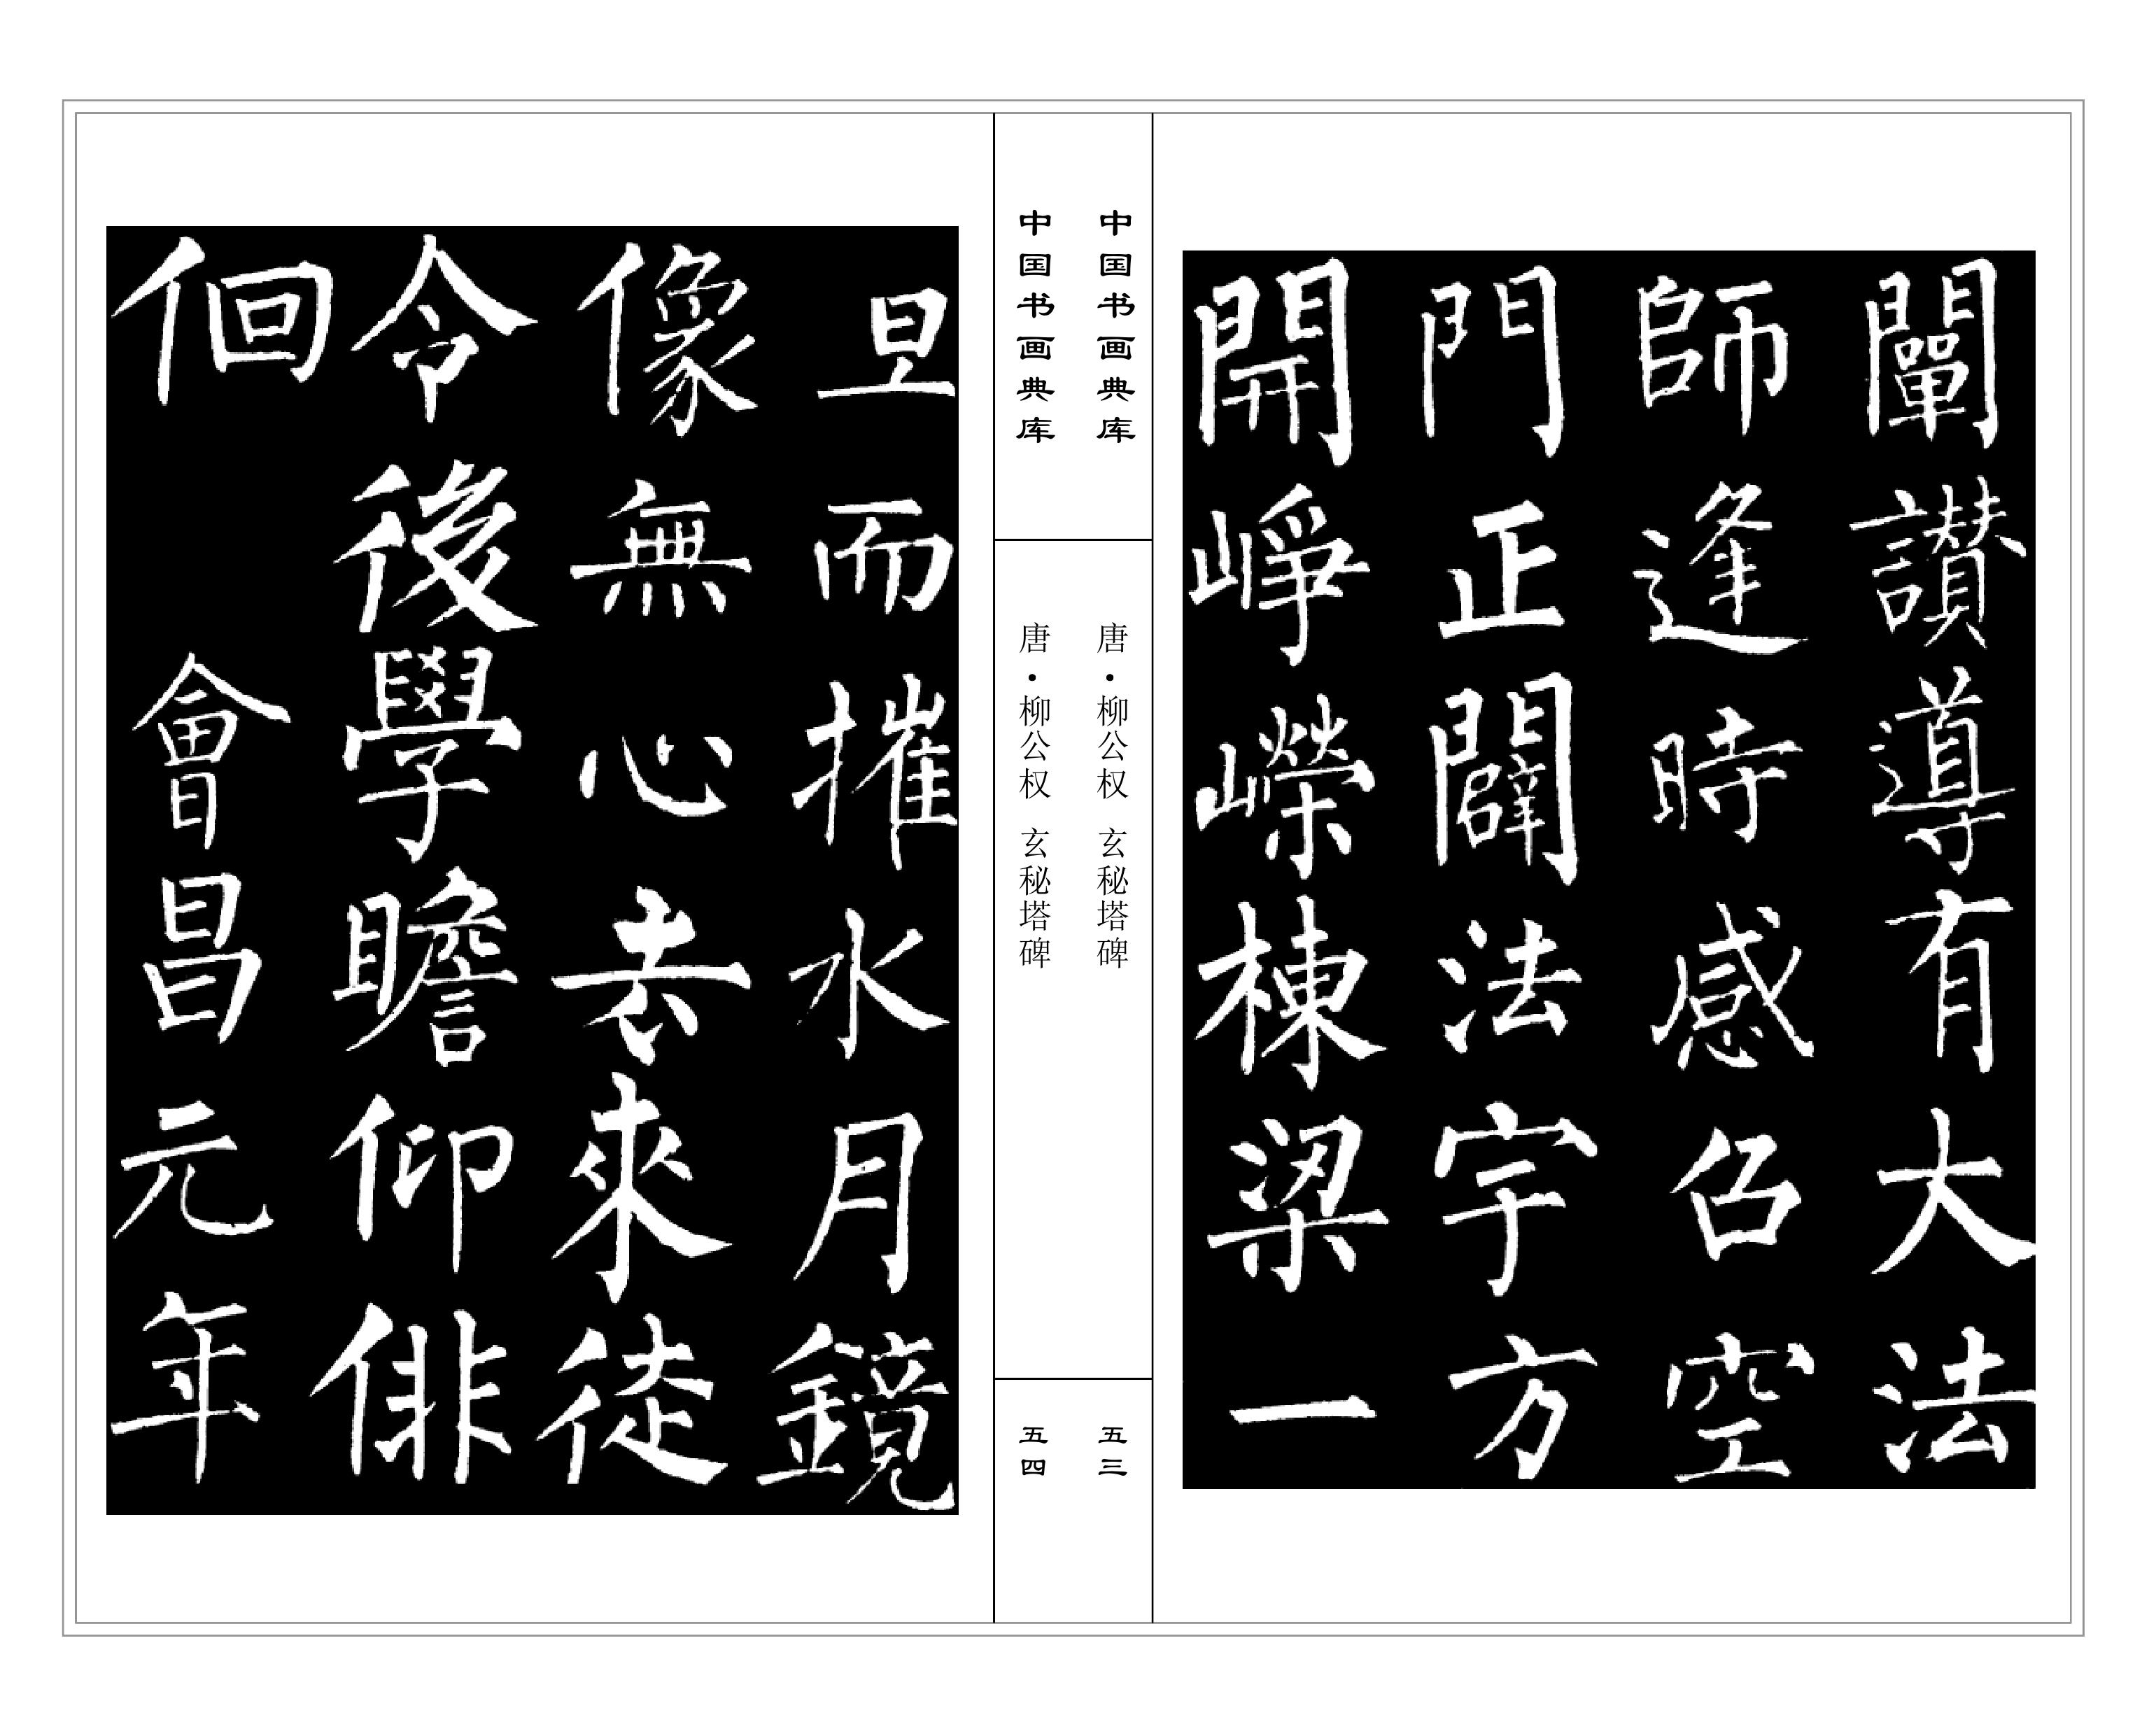 闡讚導有大法
師逢時感召空
門正闢法宇方
開崢嶸棟梁一
中国书画典库
唐·柳公权 玄秘塔碑
五三
中国书画典库
唐·柳公权 玄秘塔碑
五四
旦而摧水月鏡
像無心去來徒
令後學瞻仰俳
佪 會昌元年